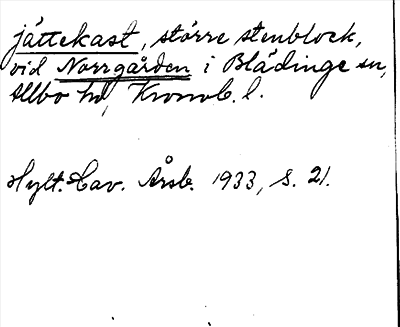 jättekast, större stenblock,
vid Norrgården i Blädinge sn,
Allbo hd, Kronob. l.
Hylt.-Cav. Årsb. 1933, s. 21.